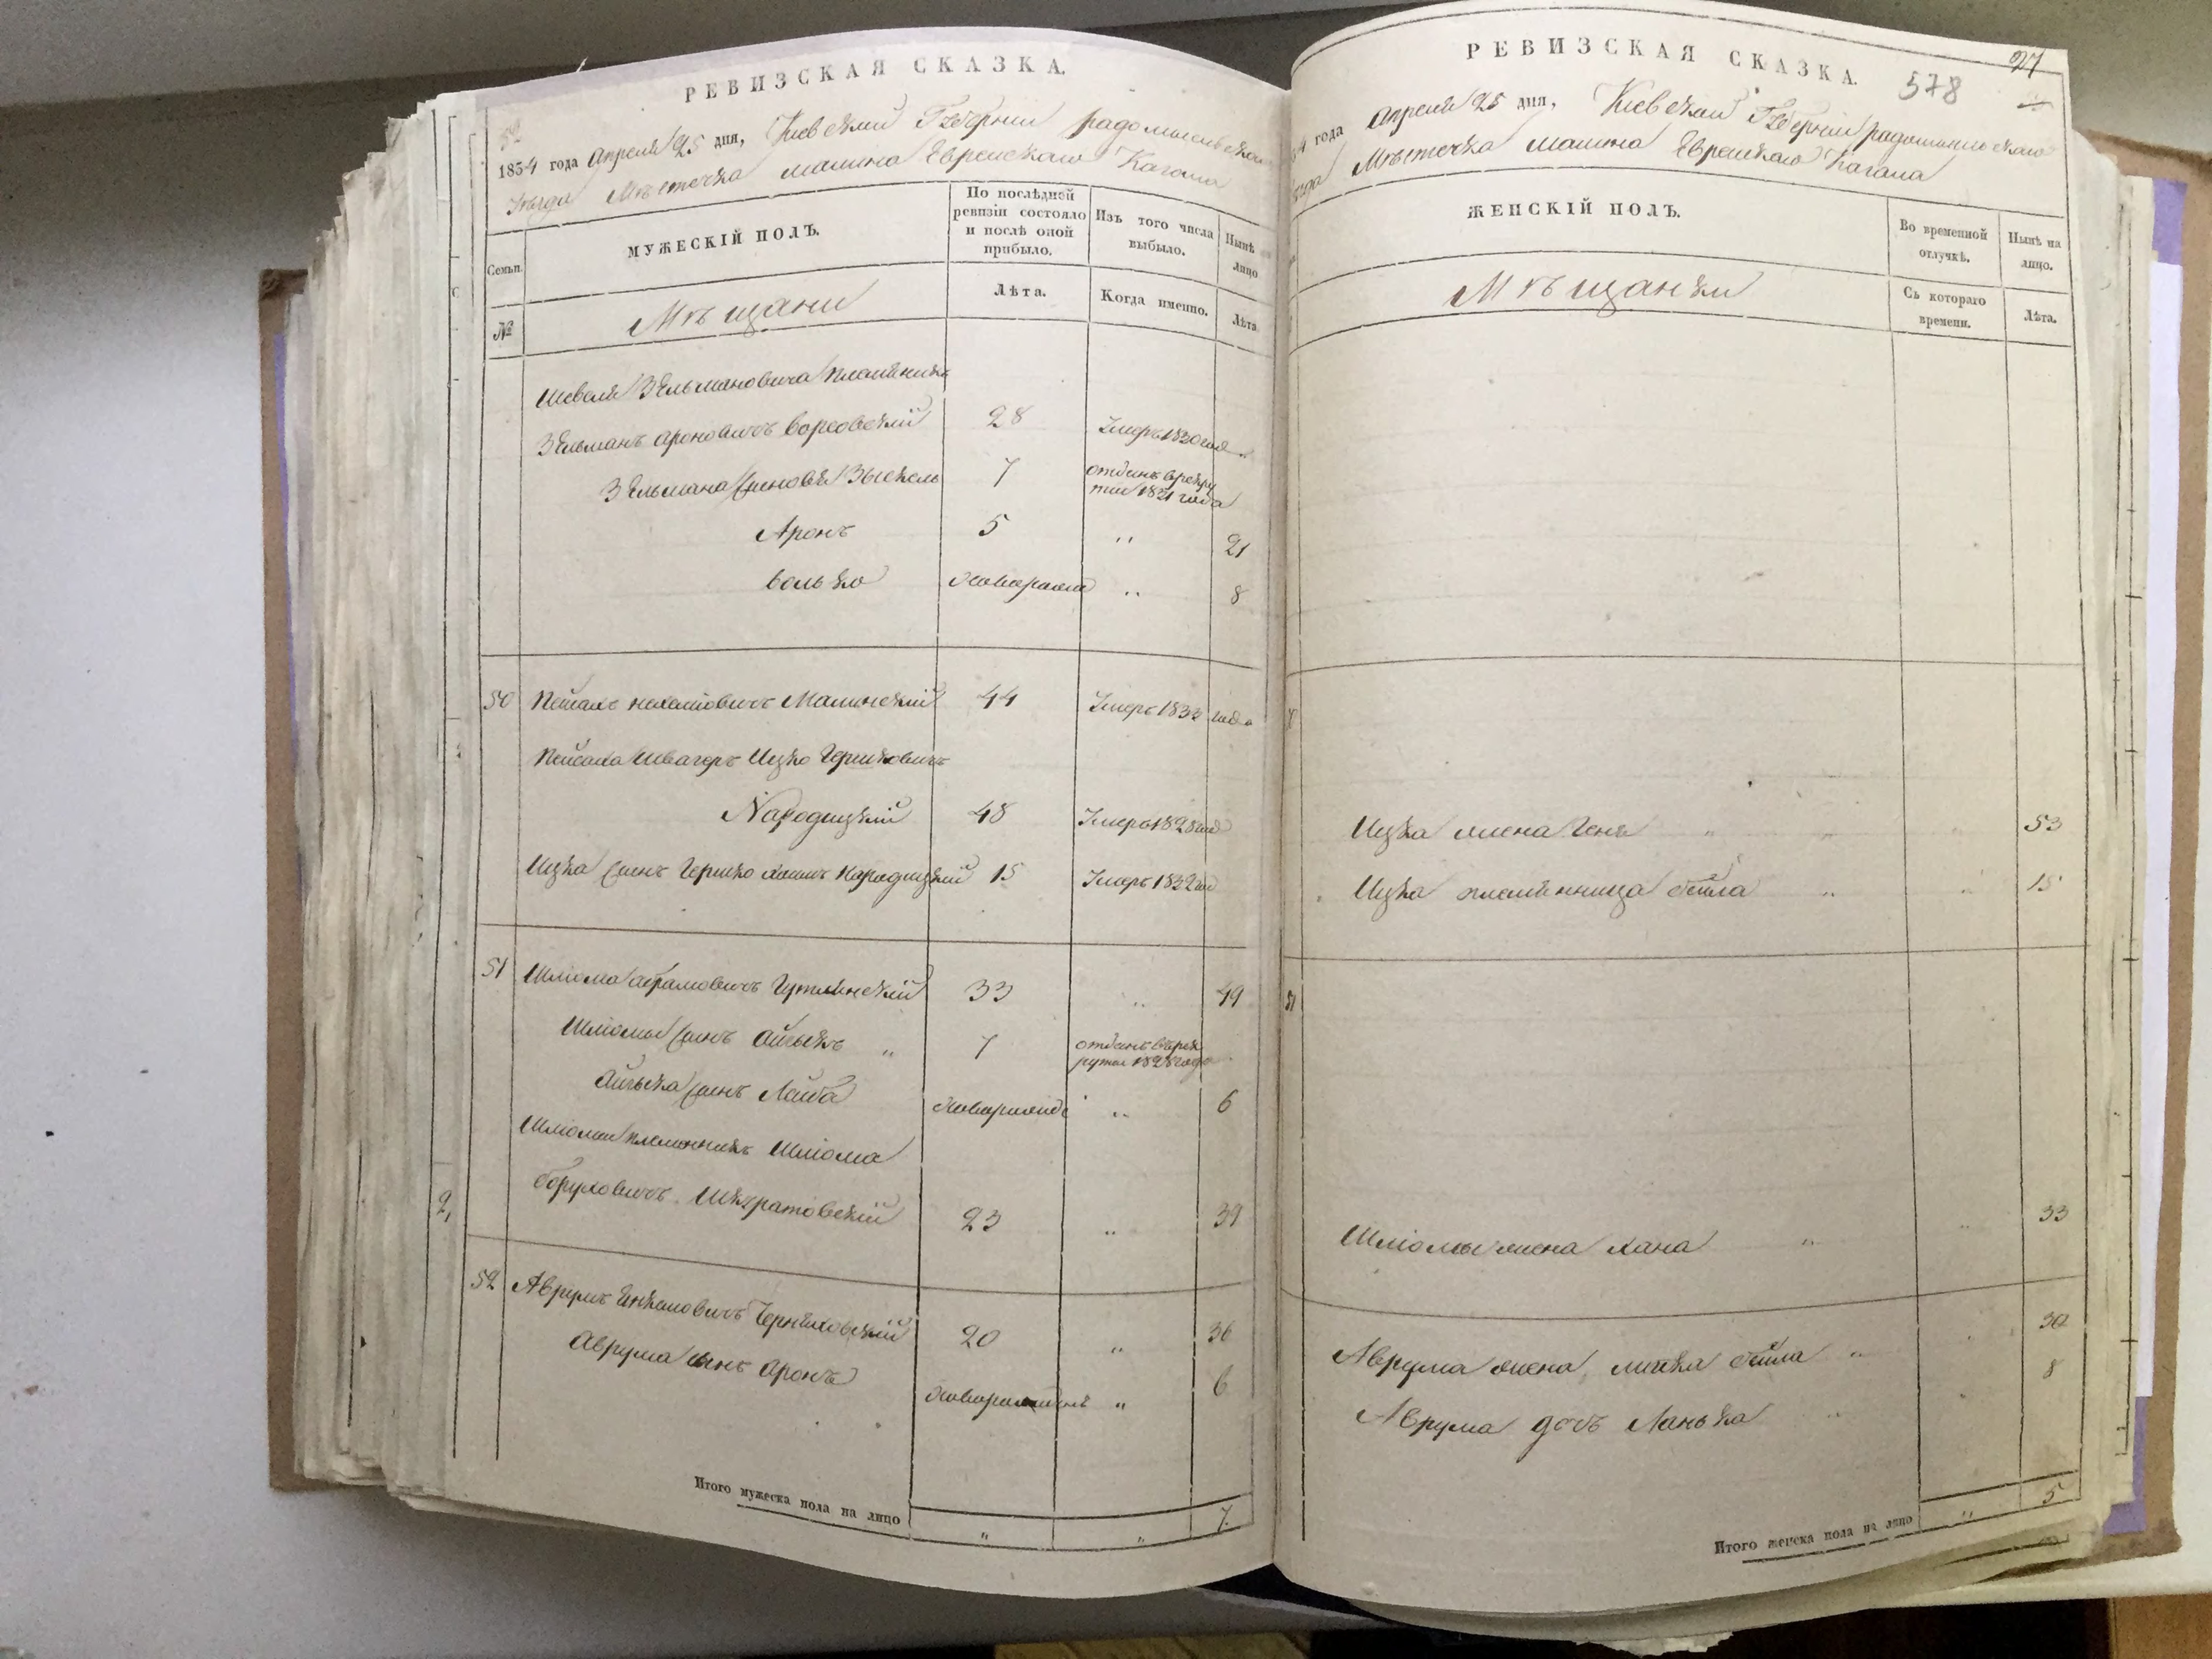 РЕВИЗСКАЯ СКАЗКА.
1834 года Апреля 25 дня, Киевской Губернии радомысльского
Уезда Мѣстечка малина Еврейскаго Кагала
Семьи.
МУЖЕСКІЙ ПОЛЪ.
По послѣдней ревизіи состояло и послѣ оной прибыло.
Изъ того числа выбыло.
Нынѣ на лицо
№
Мѣщани
Лѣта.
Когда именно.
Лѣта
Зельмановича племянникъ
Зельманъ Ароновичъ 28 Умеръ 1830 года
Зельмана сыновья 7 отданъ в рекруты 1831 года
Аронъ 5 " 21
Волько новорожд " 8
50 Пейсахъ Малинскій 44 Умеръ 1833 года
Пейсаха Швагеръ Ицко Гершковичъ
Народицкій 48 Умеръ 1828 год
Ицка сынъ Гершко Народицкій 15 Умеръ 1832 год
51 Шліома абрамовичъ 33 " 49
Шліомы сынъ Айзыкъ " 7 отданъ в рекруты 1828 года
Айзыка сынъ Лейба новорожд " 6
Шліомы племянникъ Шліома
боруховичъ 23 " 39
52 Аврумъ Янкелевичъ Черняховскій 20 " 36
Аврума сынъ Аронъ новорожденъ " 6
Итого мужеска пола на лицо " " 7.
РЕВИЗСКАЯ СКАЗКА.
578
27
года Апреля 25 дня, Киевской Губернии радомысльского
Мѣстечка малина Еврейскаго Кагала
ЖЕНСКІЙ ПОЛЪ.
Во временной отлучкѣ.
Нынѣ на лицо.
Мѣщанки
Съ котораго времени.
Лѣта.
Ицка жена Геня " " 53
Ицка племянница бейла " " 15
51
Шліомы жена хана " " 33
Аврума жена бейла " " 30
Аврума дочь Ханька " " 8
Итого женска пола на лицо " 5